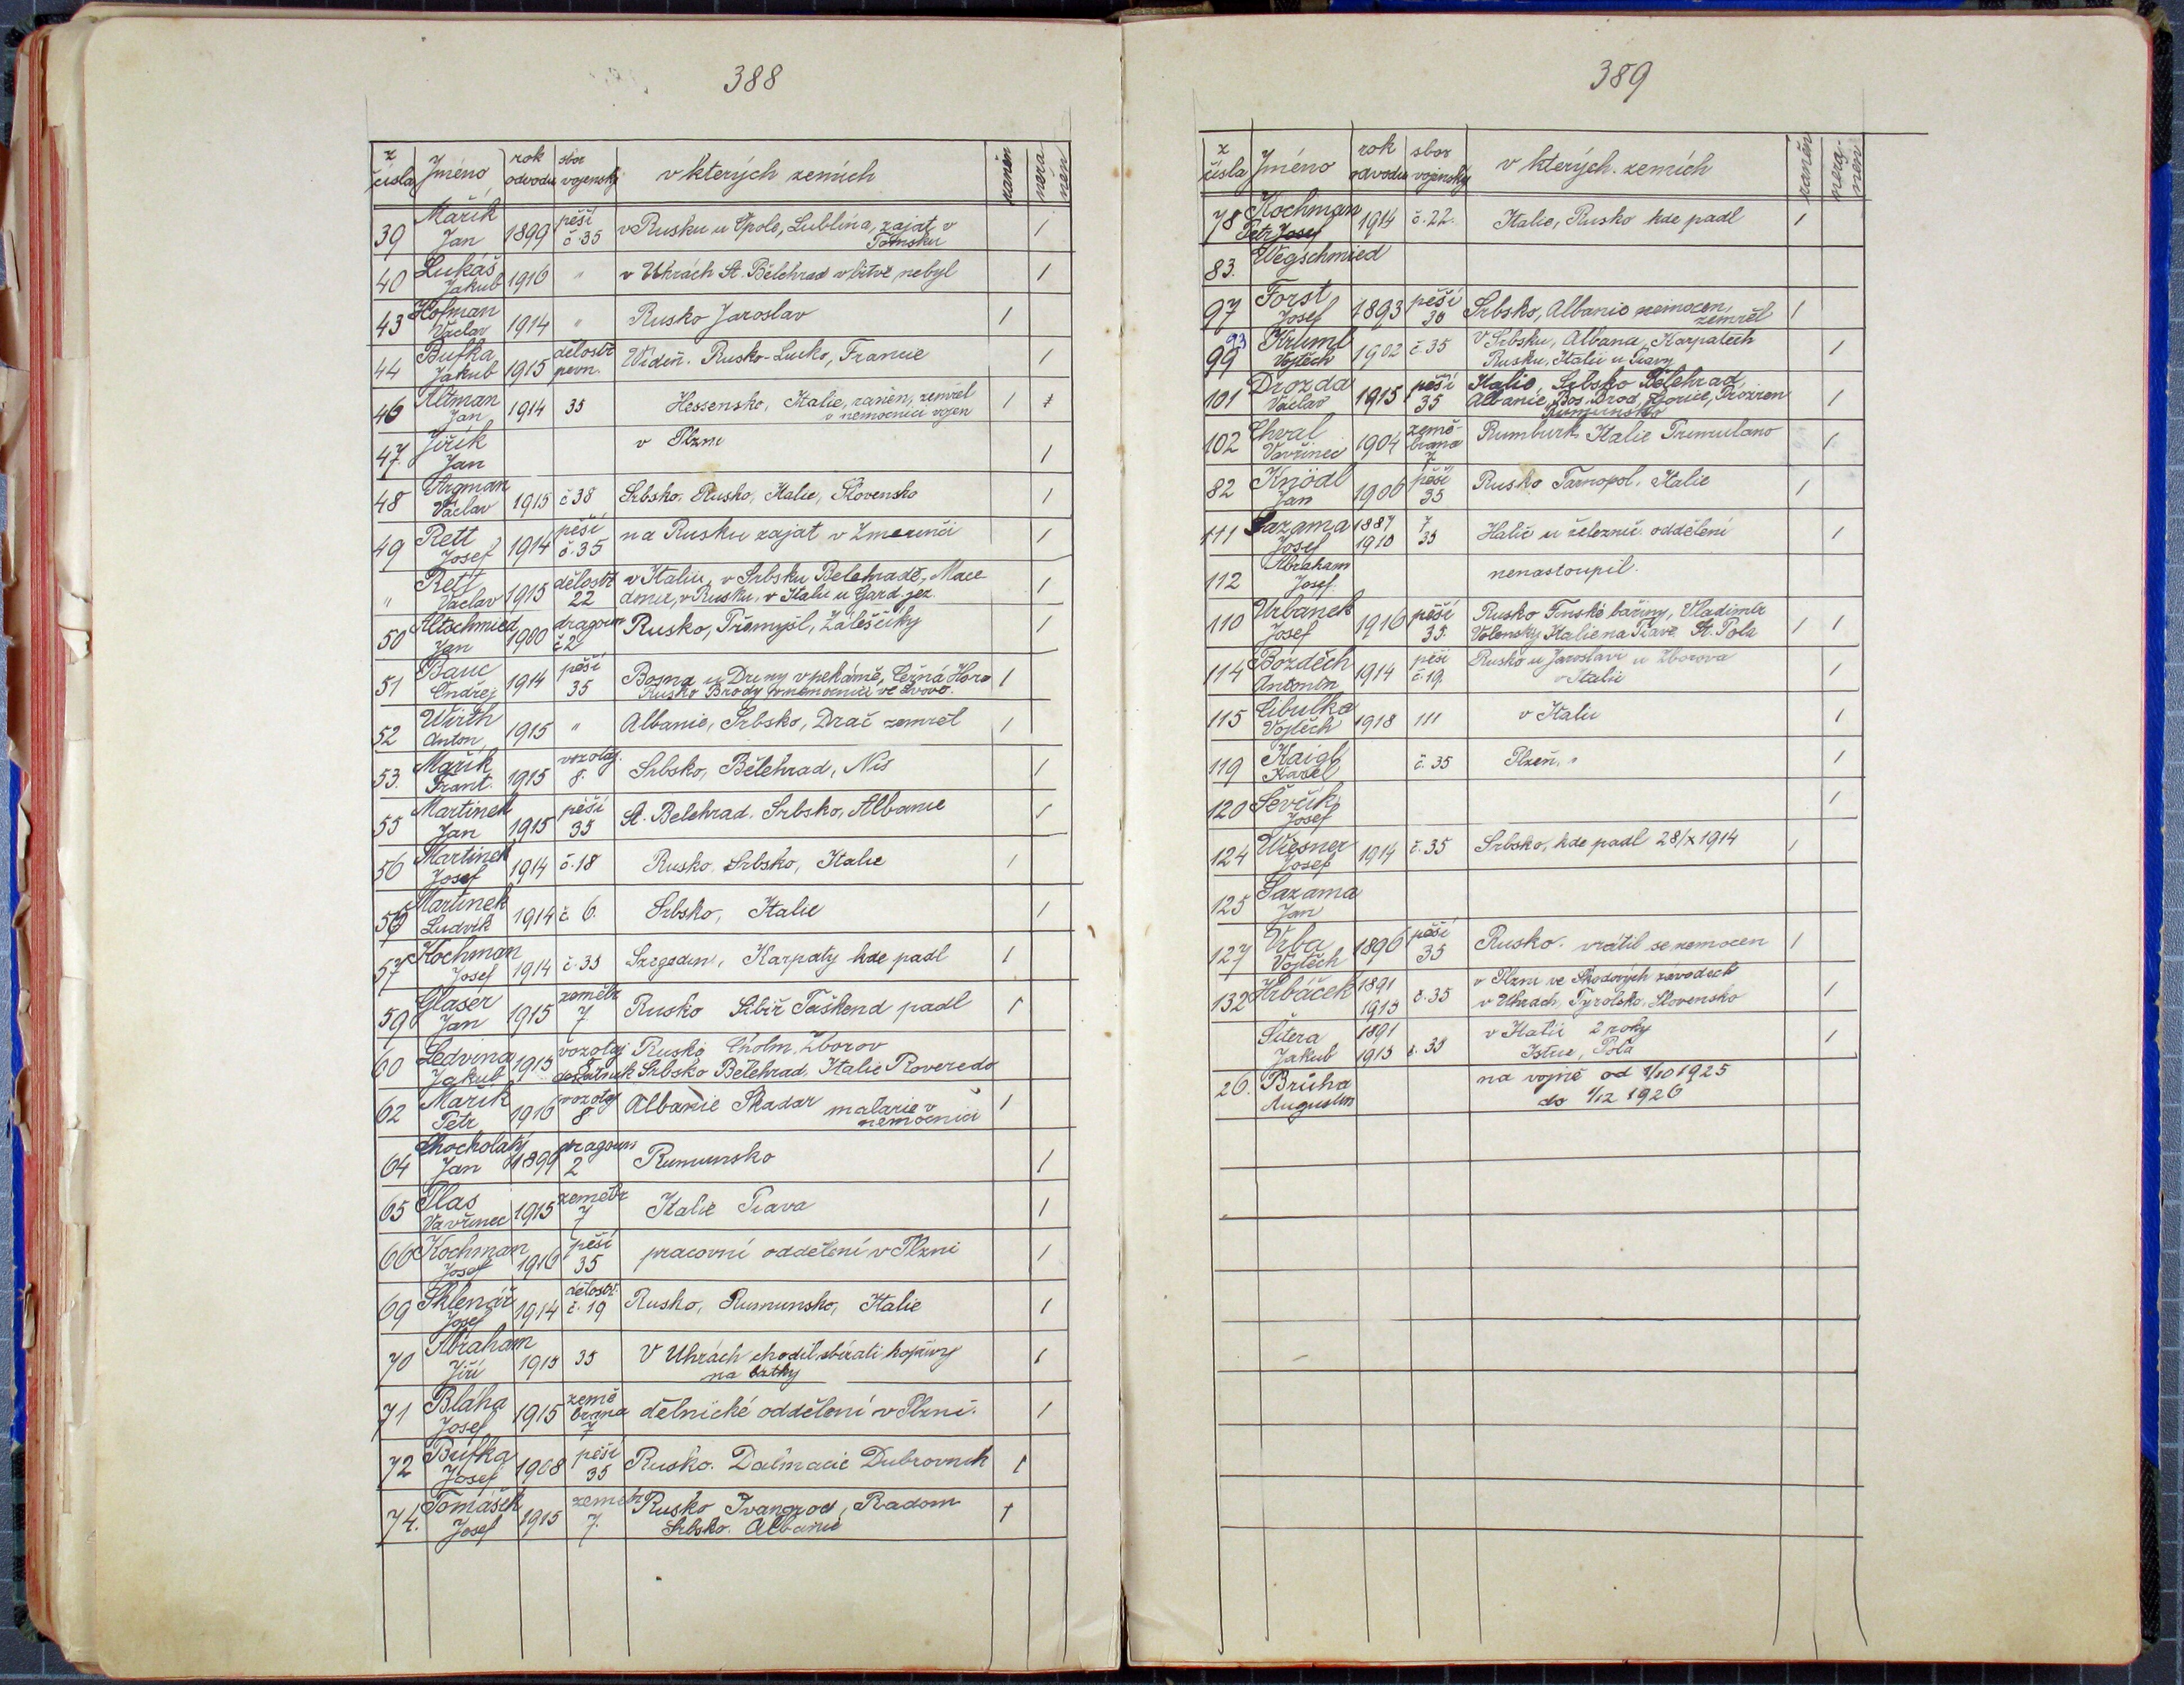 388
z čísla Jméno rok odvodu sbor vojenský v kterých zemích raněn neraněn
39 Mařík Jan 1899 pěší č.35 v Rusku u Opole, Lublína, zajat v Tomsku /
40 Lukáš Jakub 1916 " v Uhrách St. Bělehrad v bitvě nebyl /
43 Hofman Václav 1914 " Rusko Jaroslav /
44 Bufka Jakub 1915 dělostř. pevn. Vídeň. Rusko-Lucko, Francie /
46 Altman Jan 1914 35 Hessensko, Italie, raněn, zemřel v nemocnici vojen / /
47. Jiřík Jan v Plzni /
48 Václav 1915 č 38 Srbsko. Rusko, Italie, Slovensko /
49 Rett Josef 1914 pěší č.35 na Rusku zajat v Zmerinči /
" Rett Václav 1915 dělostř 22 v Italii, v Srbsku Belehradě, Mace
donii, v Rusku, v Italii u Gard. jez. /
50 Altschmied Jan 1900 dragoun č2 Rusko, Přemyšl, Záleščiky /
51 Bauc Ondřej 1914 pěší 35 Bosna u Driny v pekárně, Černá Hora
Rusko Brody v nemocnici ve Lvově. /
52 Wirth Anton, 1915 " Albanie, Srbsko, Drač zemřel /
53. Mařík Frant. 1915 vozotaj. 8. Srbsko, Bělehrad, Nis /
55 Martinek Jan 1915 pěší 35 St. Belehrad. Srbsko, Albanie /
56 Martinek Josef 1914 č.18 Rusko, Srbsko, Italie /
56 Martinek Ludvík 1914 č 6. Srbsko, Italie /
57 Kochman Josef 1914 č.35 Szegedin, Karpaty kde padl /
59 Glaser Jan 1915 zeměbr 7 Rusko Sibiř Taškend padl /
60 Ledvina Jakub 1915 vozotaj Rusko Cholm, Zborov
Srbsko Bělehrad, Italie Roveredo
62 Mařík Petr 1916 vozotaj 8 Albanie Skadar malarie v nemocnici /
64 Chocholatý Jan 1899 dragoun 2 Rumunsko /
65 Plas Vavřinec 1915 zeměbr 7 Italie Piava /
66 Kochman Josef 1916 pěší 35 pracovní oddělení v Plzni /
69 Sklenář Josef 1914 dělostř. č.19 Rusko, Rumunsko, Italie /
70 Abraham Jiří 1915 35 V Uhrách chodil sbírati kopřivy
na látky /
71 Bláha Josef 1915 země brana 7 dělnické oddělení v Plzni. /
72 Bufka Josef 1908 pěší 35 Rusko. Dalmacie Dubrovnik /
74. Tomášek Josef 1915 zeměbr 7. Rusko Ivangrod, Radom
Srbsko. Albanie /
389
z čísla Jméno rok odvodu sbor vojenský v kterých zemích raněn neraněn
78 Kochman Petr Josef 1914 č.22. Italie, Rusko kde padl /
83. Wegschmied
97 Forst Josef 1893 pěší 30 Srbsko, Albanie nemocen, zemřel /
93
99 Kruml Vojtěch 1902 č.35 V Srbsku, Albana, Karpatech
Rusku, Italii u Piavy /
101 Drozda Václav 1915 pěší 35 Italie, Srbsko Bělehrad,
Albanie, Bos. Brod, Gorice, Prizren
Rumunsko /
102 Chval Vavřinec 1904 země-brana 7 Rumburk Italie /
82 Knödl Jan 1906 pěší 35 Rusko Tarnopol. Italie /
111 Sazama Josef 1887 1910 7 35 Halič u železnič. oddělení /
112 Abraham Josef. nenastoupil.
110 Urbanek Josef 1916 pěší 35. Rusko Pinské bařiny, Vladimir
Volensky Italie na Piavě St. Pola / /
114 Bozděch Antonín 1914 pěší č.19 Rusko u Jaroslavi u Zborova
v Italii /
115 Cibulka Vojtěch 1918 111 v Italii /
119 Kaigl Karel č.35 Plzeň. /
120 Ševčík Josef /
124 Wiesner Josef 1914 č.35 Srbsko, kde padl 28/X 1914 /
125 Sazama Jan
127 Vrba Vojtěch 1896 pěší 35 Rusko. vrátil se nemocen /
132 Hrbáček 1891 1915 č.35 v Plzni ve Škodových zavodech
v Uhrách, Tyrolsko. Slovensko /
Šitera Jakub 1891 1915 č.35 v Italii 2 roky
Istrie, Pola /
26. Brůha Augustin na vojně od 1/10 1925
do 1/12 1926